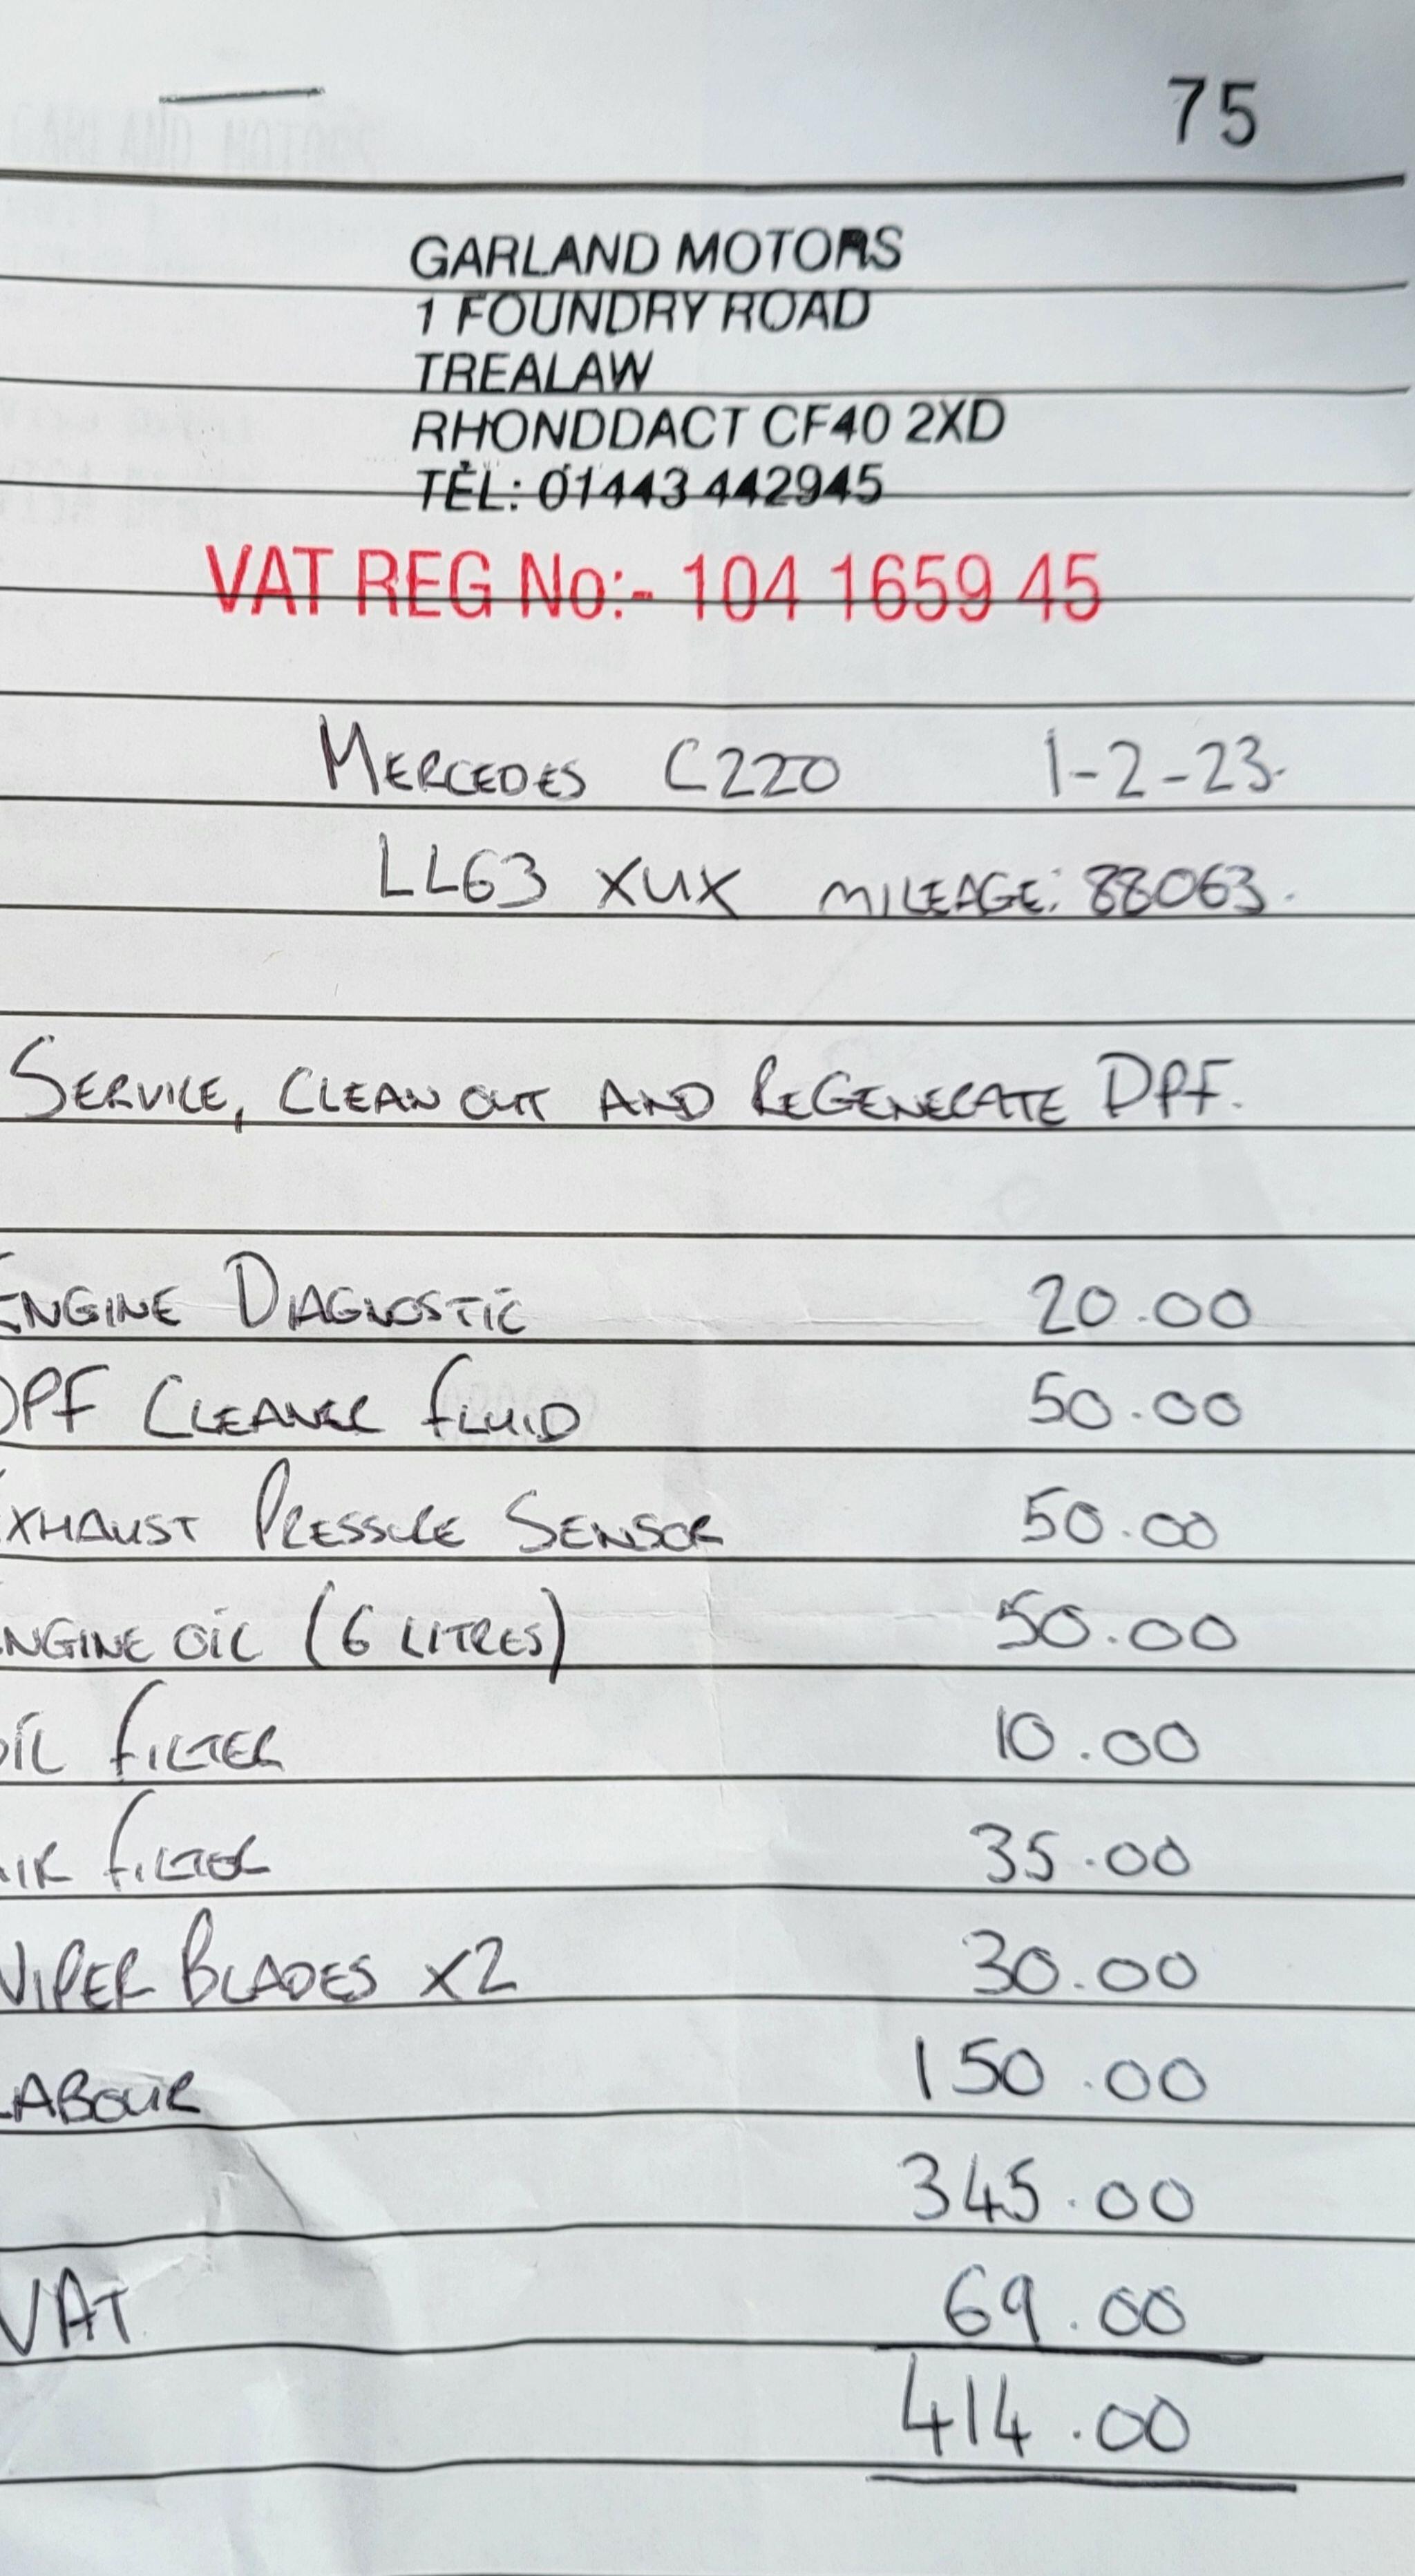 75
GARLAND MOTORS
1 FOUNDRY ROAD
TREALAW
RHONDDACT CF40 2XD
TEL: 01443 442945
VAT REG No:- 104 1659 45
MERCEDES C220 1-2-23.
LL63 XUX MILEAGE: 88063.
SERVICE, CLEAN OUT AND REGENERATE DPF.
ENGINE DIAGNOSTIC 20.00
DPF CLEANER FLUID 50.00
EXHAUST PRESSURE SENSOR 50.00
ENGINE OIL (6 LITRES) 50.00
OIL FILTER 10.00
AIR FILTER 35.00
WIPER BLADES X2 30.00
LABOUR 150.00
345.00
VAT 69.00
414.00